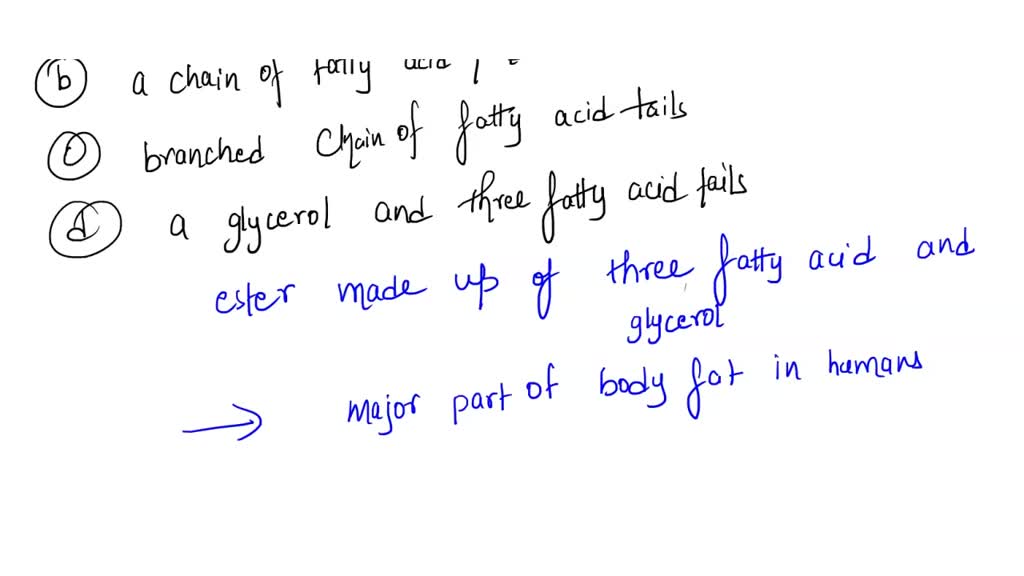 b a chain of fatty acid
c branched chain of fatty acid tails
d a glycerol and three fatty acid tails
ester made up of three fatty acid and
glycerol
→ major part of body fat in humans